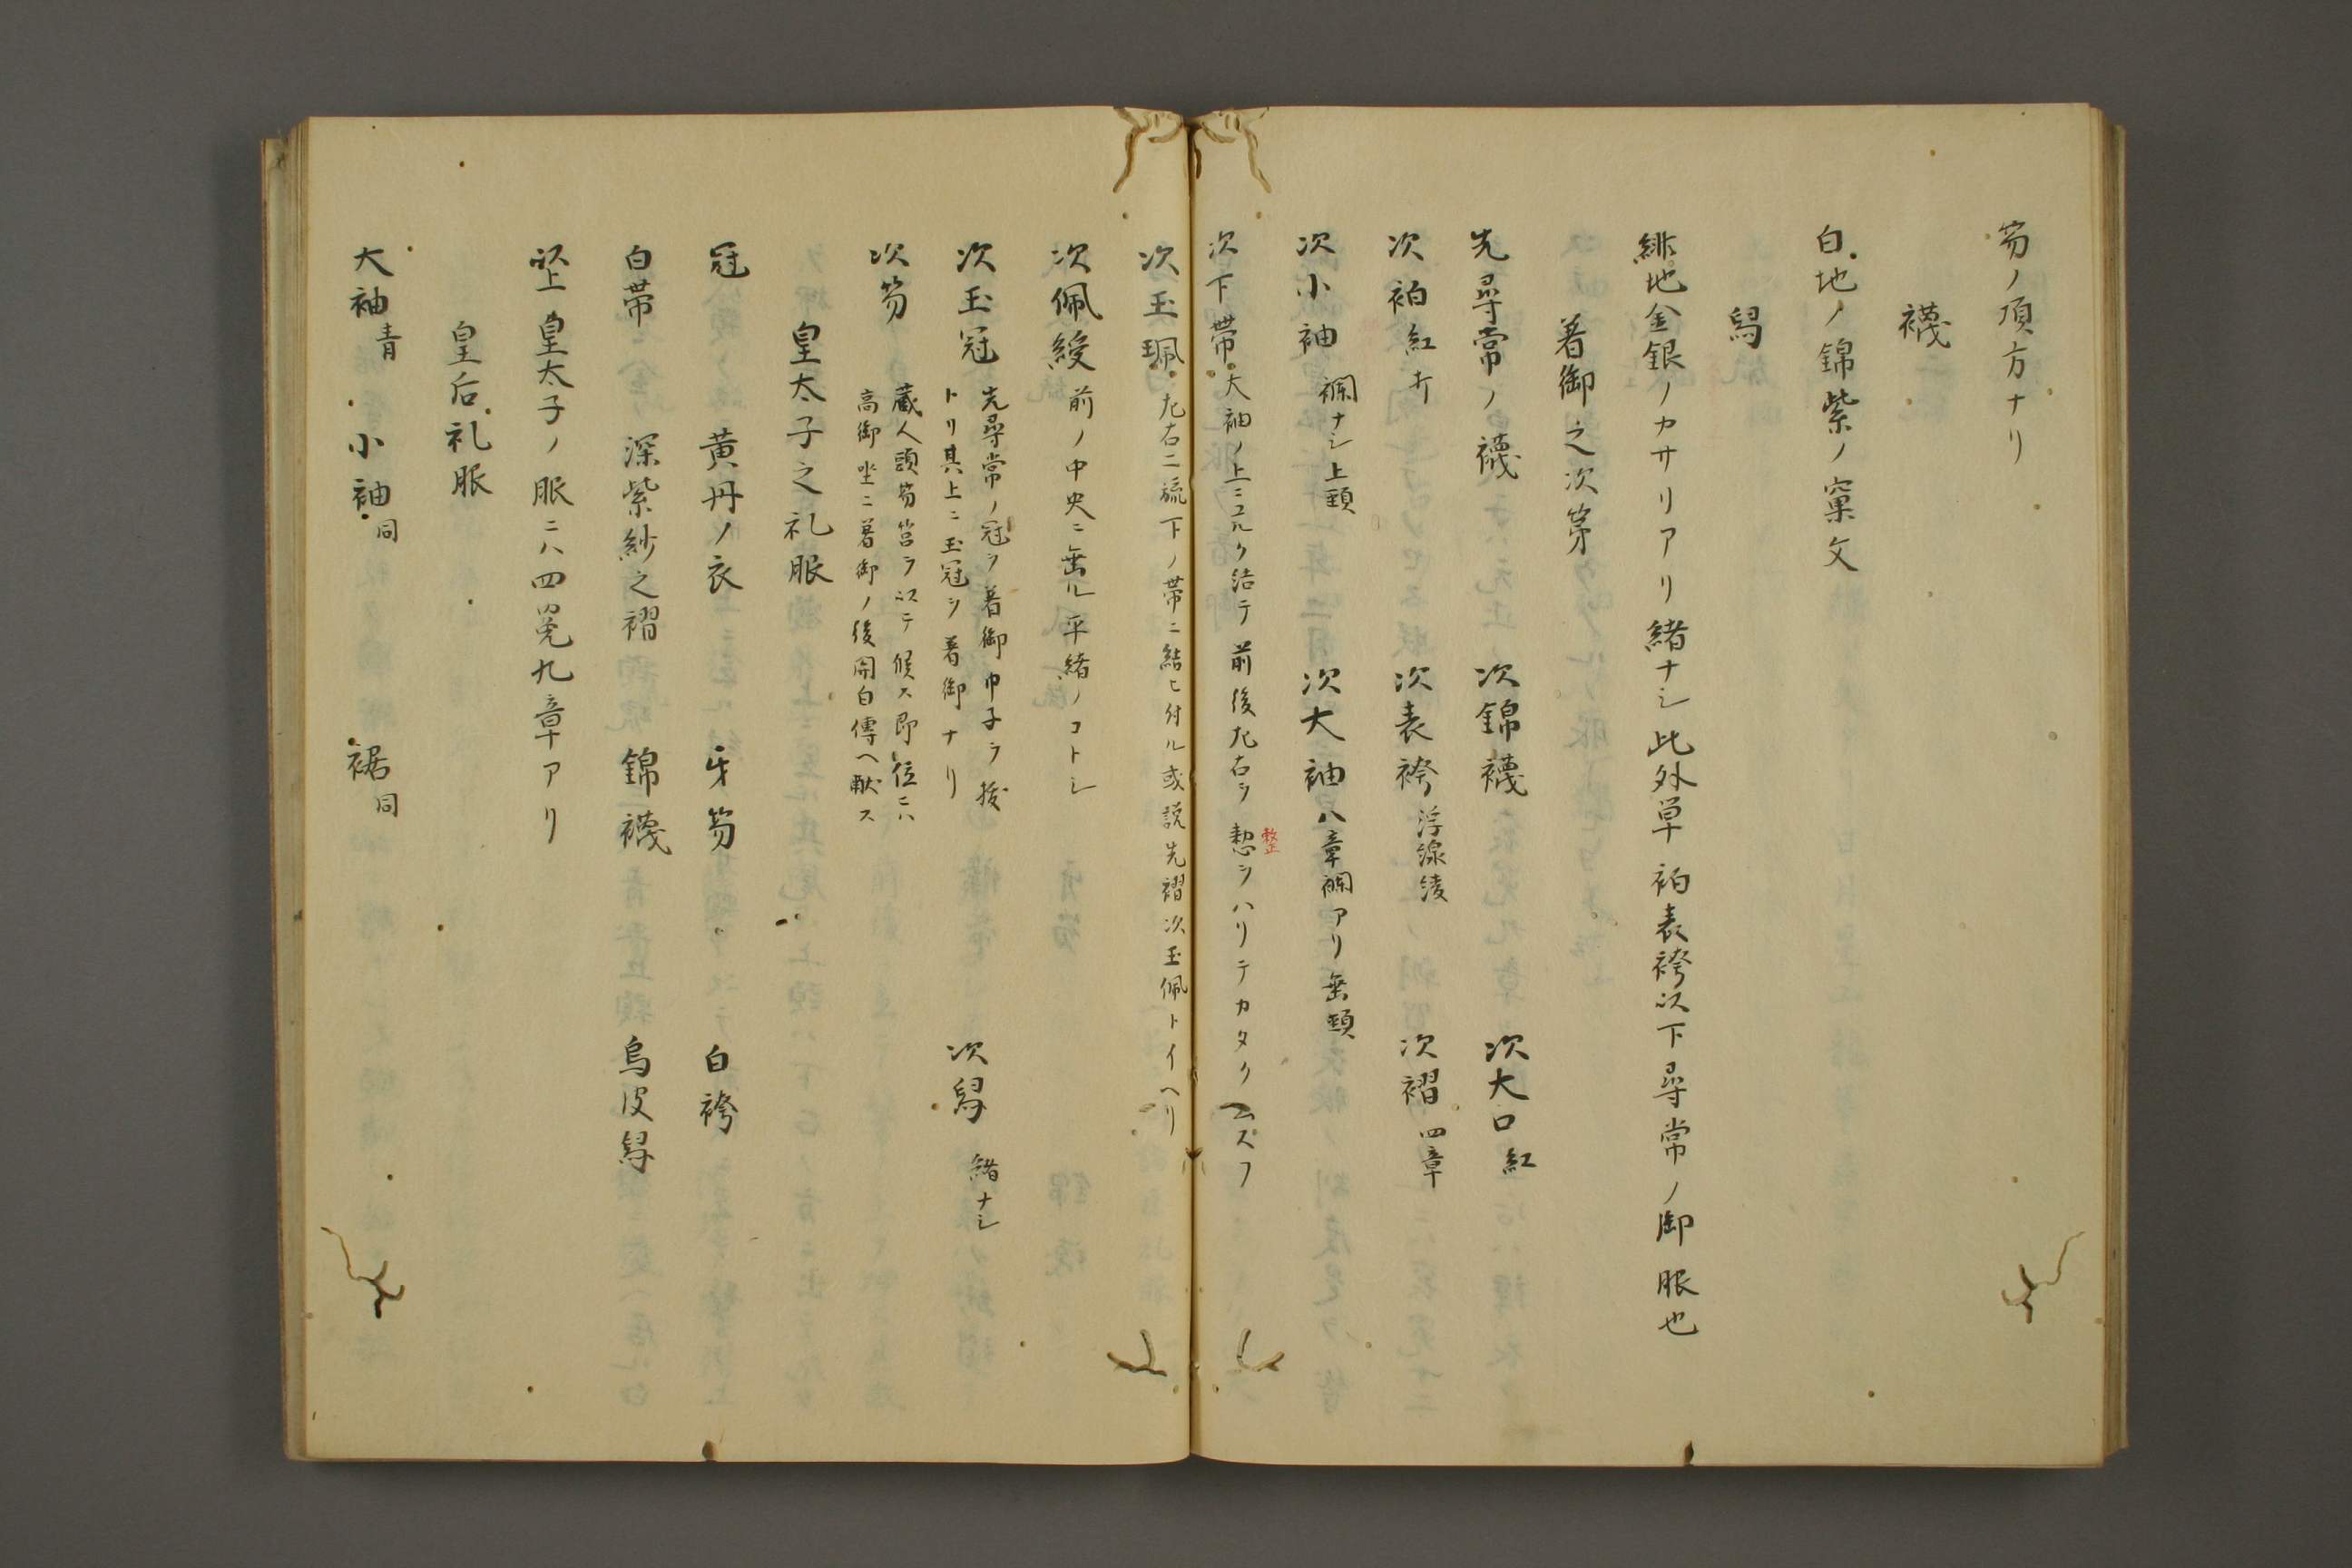 笏ノ頂方ナリ
襪
白地ノ錦紫ノ窠文
舃
緋地金銀ノカサリアリ緒ナシ此外単袙表袴以下尋常ノ御服也
着御之次第
先尋常ノ襪 次錦襪 次大口紅
次袙紅打 次表袴浮線綾 次褶四章
次小袖襴ナシ上頸 次大袖八章襴アリ垂頸
次下帯大袖ノ上ニユルク結テ前後左右ヲ懃シハリテカタクムスフ
整
次玉珮左右二流下ノ帯ニ結ヒ付ル或説先褶次玉佩トイヘリ
次佩綬前ノ中央ニ垂ル平緒ノコトシ
次玉冠先尋常ノ冠ヲ着御巾子ヲ抜
トリ其上ニ玉冠ヲ着御ナリ 次舃緒ナシ
次笏蔵人頭笏筥ヲ以テ候ス即位ニハ
高御坐ニ着御ノ後関白傳ヘ献ス
皇太子之礼服
冠 黄丹ノ衣 牙笏 白袴
白帯 深紫紗之褶 錦襪 烏皮舃
以上皇太子ノ服ニハ四冕九章アリ
皇后礼服
大袖青 小袖同 裾同